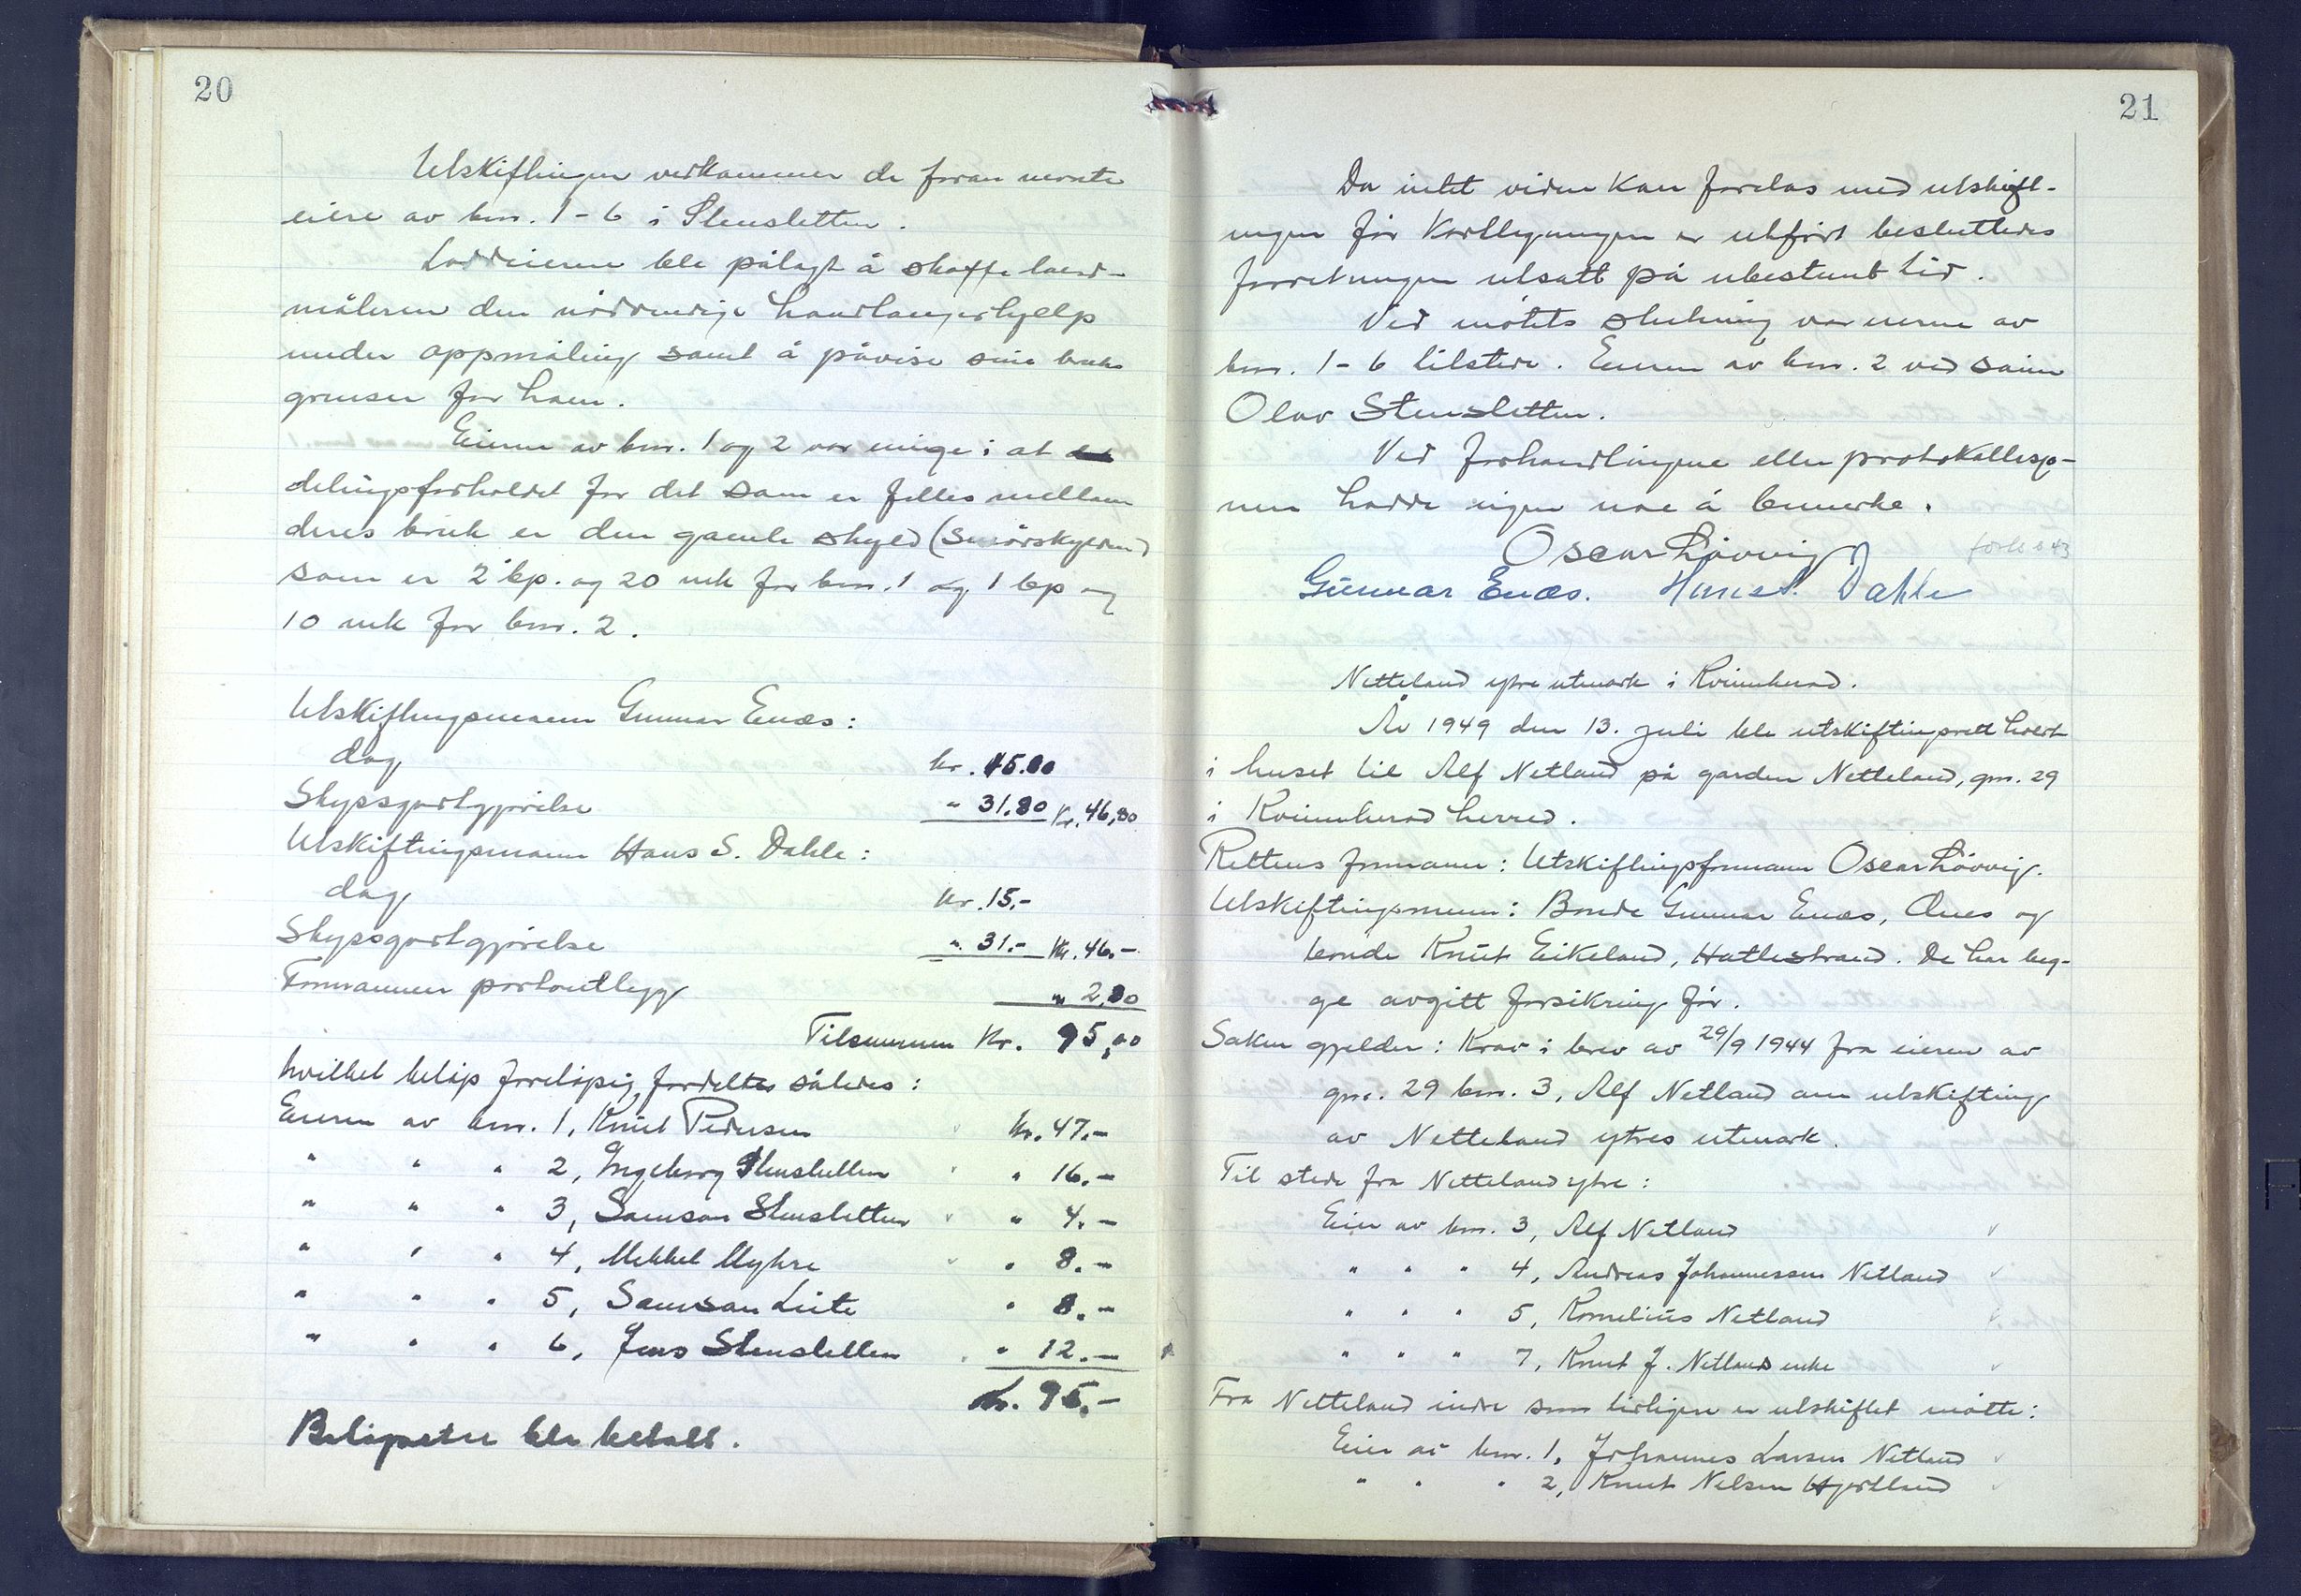 20
Utskiftingen vedkommer de foran nevnte
eiere av bnr. 1-6 i Stensletten.
Loddeierne ble pålagt å skaffe land-
måleren den nödvendige handlangerhjelp
under oppmåling samt å påvise sine bruks
grenser for ham.
Eierne av bnr. 1 og 2 var enige i at
delingsforholdet for det som er felles mellom
deres bruk er den gamle skyld (Smörskylden)
som er 2 bp. og 20 mk for bnr. 1 og 1 bp og
10 mk for bnr. 2.
Utskiftingsmann Gunnar Enæs:
dag kr. 15.00
Skyssgodtgjörelse " 31,80 Kr. 46,80
Utskiftingsmann Hans S. Dahle:
dag kr. 15,-
Skyssgodtgjörelse " 31.- Kr. 46.-
Formannen portoutlegg " 2,20
Tilsammen Kr. 95,00
hvilket belöp forelöpig fordeltes således:
Eieren av bnr. 1, Knut Pedersen kr. 47.-
" " " 2, Ingeborg Stensletten " 16.-
" " " 3, Samson Stensletten " 4.-
" " " 4, Mikkel Myhre " 8.-
" " " 5, Samson Leite " 8.-
" " " 6, Jens Stensletten " 12.-
kr. 95.-
Belöpene ble betalt.
21
Da intet videre kan foretas med utskift-
ingen för kartlegningen er utfört besluttedes
forretningen utsatt på ubestemt tid.
Ved mötets slutning var eierne av
bnr. 1-6 tilstede. Eieren av bnr. 2 ved sönn
Olav Stensletten.
Ved forhandlingene eller protokollasjo-
nen hadde ingen noe å bemerke.
Oscar Lövvig
forts s 43
Gunnar Enæs. Hans S. Dahle
Netteland ytre utmark i Kvinnherad.
År 1949 den 13. juli ble utskiftingsrett holdt
i huset til Alf Netland på garden Netteland, gnr. 29
i Kvinnherad herred.
Rettens formann: Utskiftingsformann Oscar Lövvig.
Utskiftingsmenn: Bonde Gunnar Enæs, Ænes og
bonde Knut Eikeland, Hatlestrand. De har beg-
ge avgitt forsikring för.
Saken gjelder: Krav i brev av 29/9 1944 fra eieren av
gnr. 29 bnr. 3, Alf Netland om utskifting
av Netteland ytres utmark.
Til stede fra Netteland ytre:
Eier av bnr. 3, Alf Netland
" " " 4, Andreas Johannessen Netland
" " " 5, Kornelius Netland
" " " 7, Knut J. Netlands enke
Fra Netteland indre som tidligere er utskiftet mötte:
Eier av bnr. 1, Johannes Larsen Netland
" " " 2, Knut Nelsen Hjortland